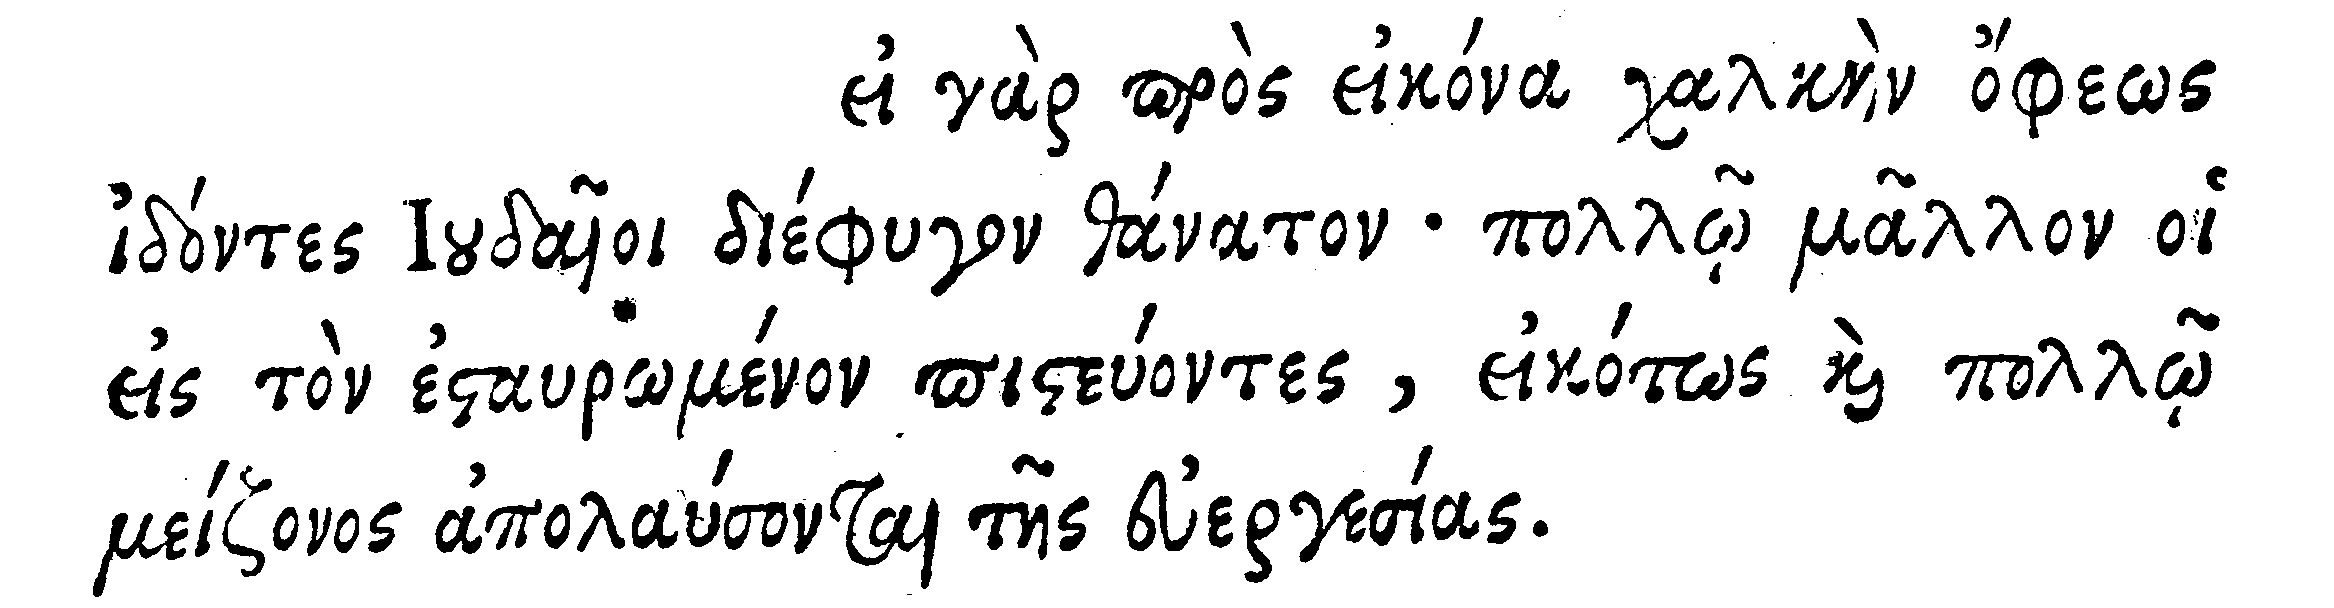 εἰ γὰρ πρὸς εἰκόνα χαλκὴν ὄφεως
ἰδόντες Ιουδαῖοι διέφυγον θάνατον · πολλῷ μᾶλλον οἱ
εἰς τὸν ἐσταυρωμένον πιστεύοντες, εἰκότως καὶ πολλῷ
μείζονος ἀπολαύσονται τῆς εὐεργεσίας.